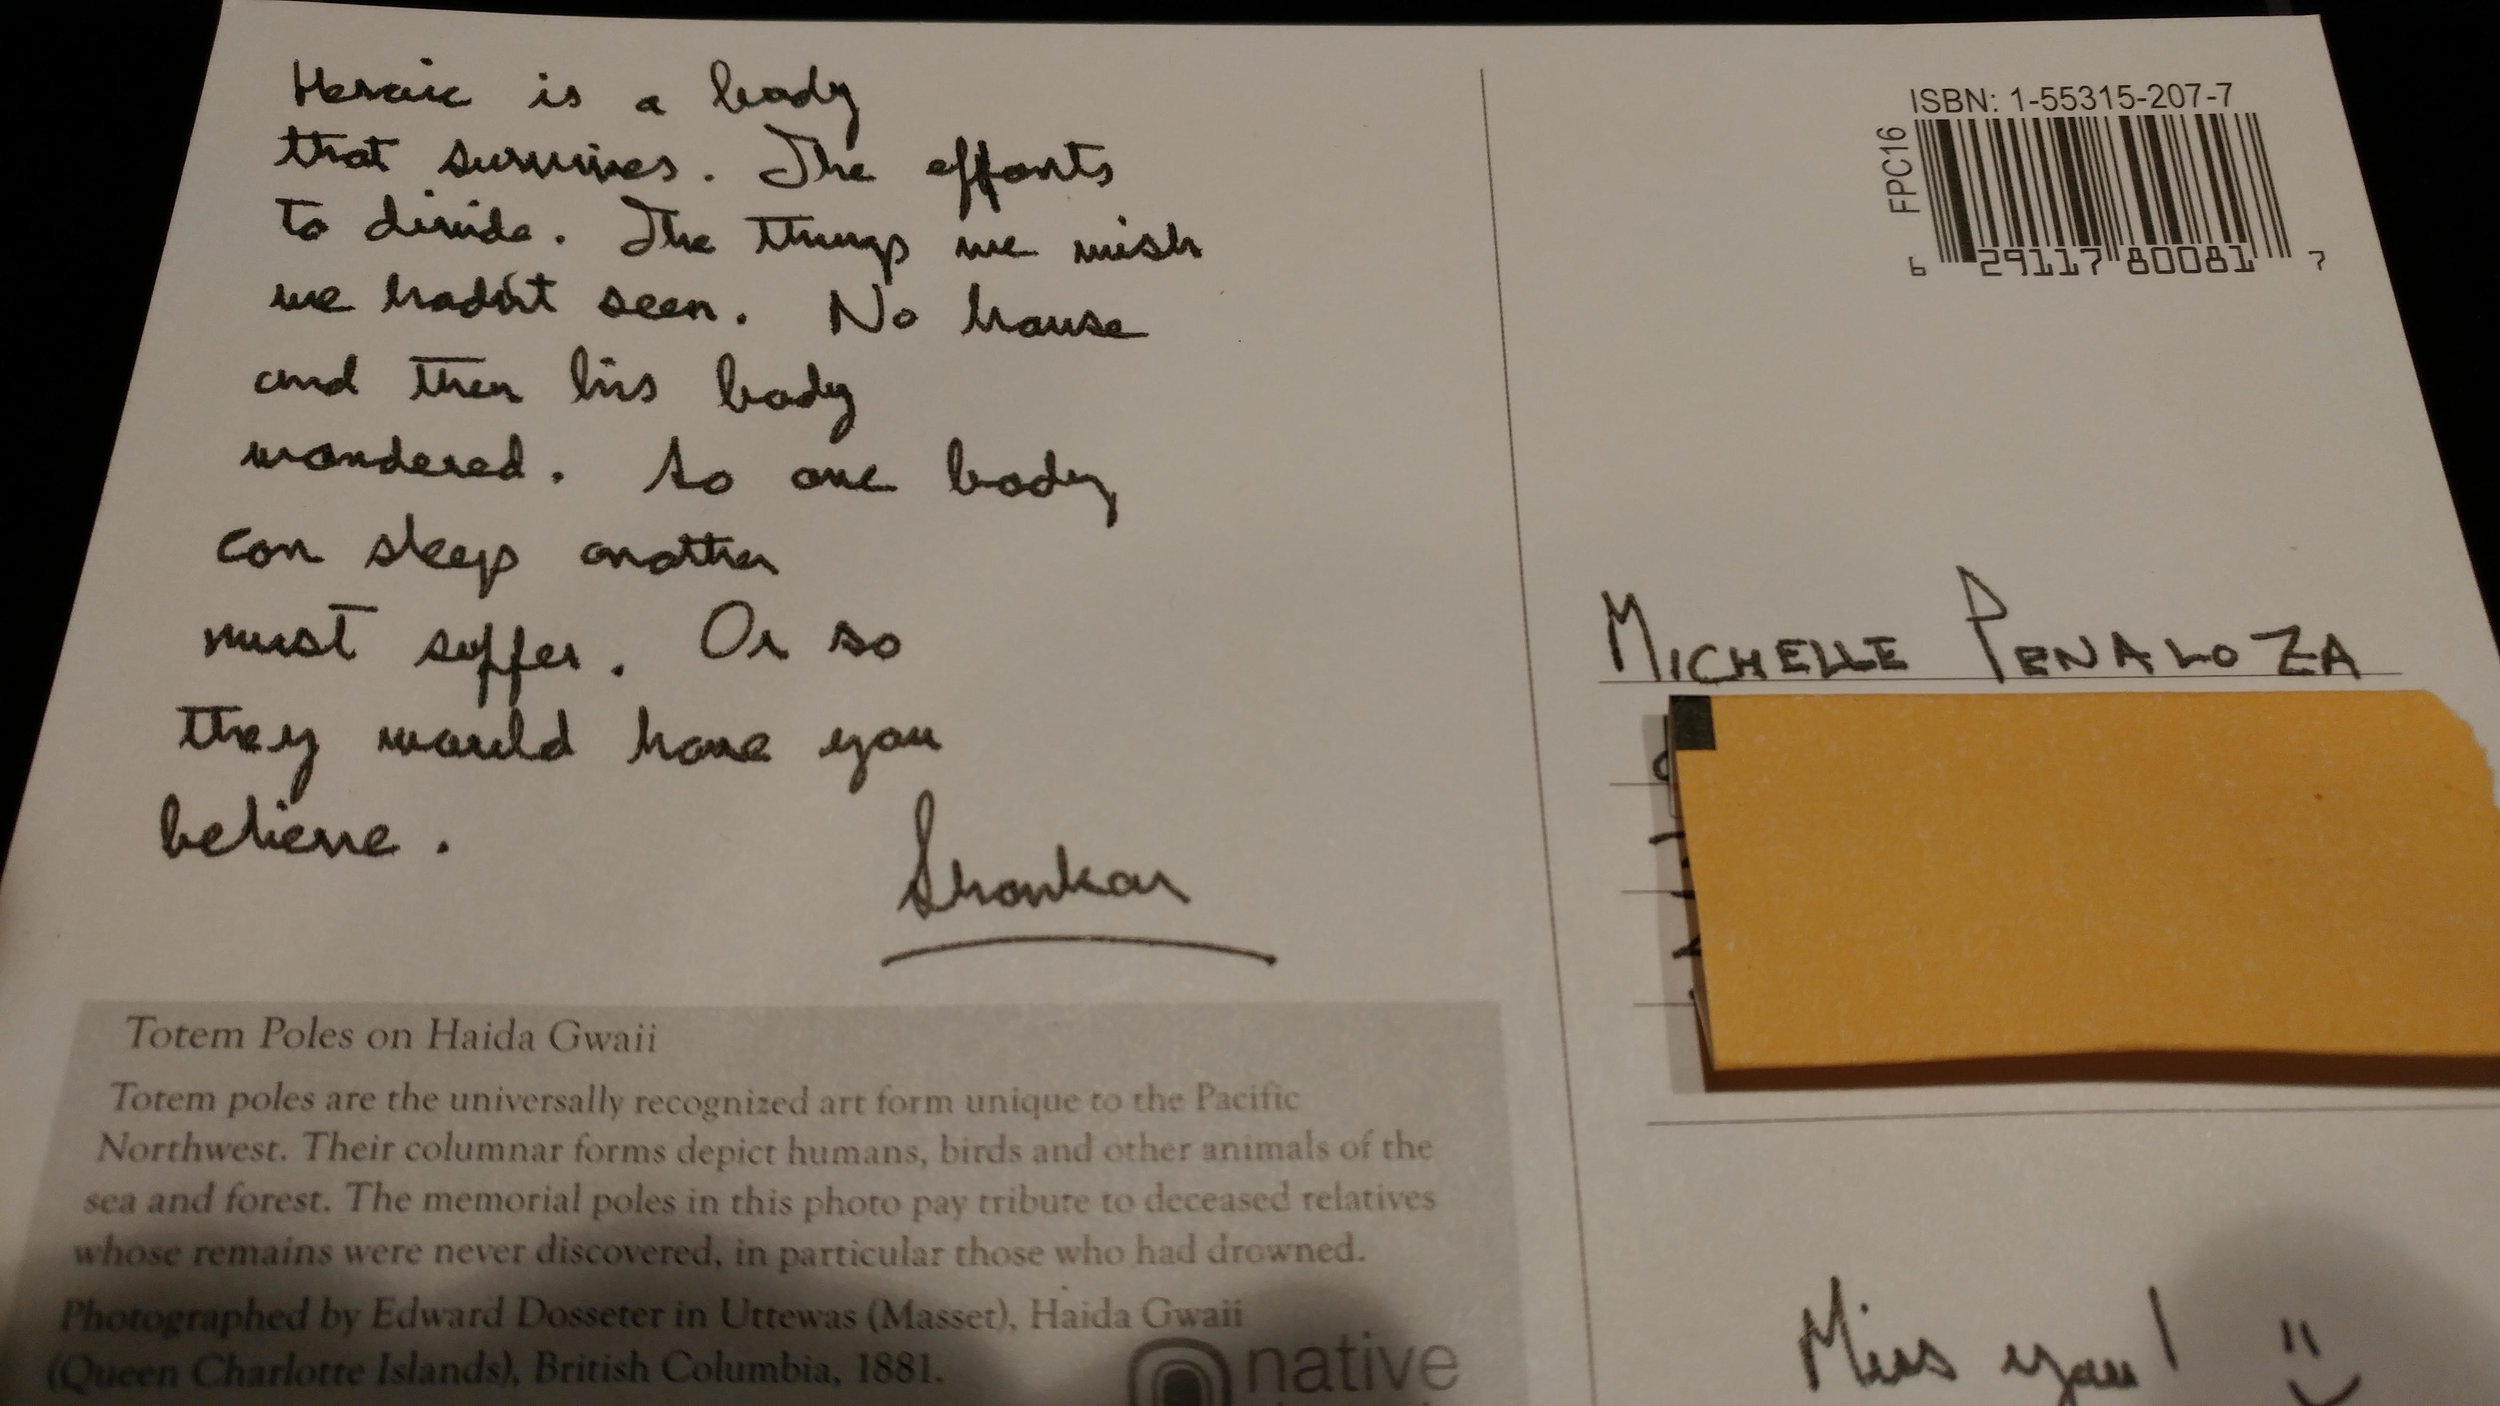 Heroic is a body
that survives. The efforts
to divide. The things we wish
we hadn't seen. No house
and then his body
wandered. So one body
can sleep another
must suffer. Or so
they would have you
believe.
Shankar
Totem Poles on Haida Gwaii
Totem poles are the universally recognized art form unique to the Pacific
Northwest. Their columnar forms depict humans, birds and other animals of the
sea and forest. The memorial poles in this photo pay tribute to deceased relatives
whose remains were never discovered, in particular those who had drowned.
Photographed by Edward Dosseter in Uttewas (Masset), Haida Gwaii
(Queen Charlotte Islands), British Columbia, 1881.
native
ISBN: 1-55315-207-7
FPC16
6 29117 80081 7
MICHELLE PENALOZA
Miss you!